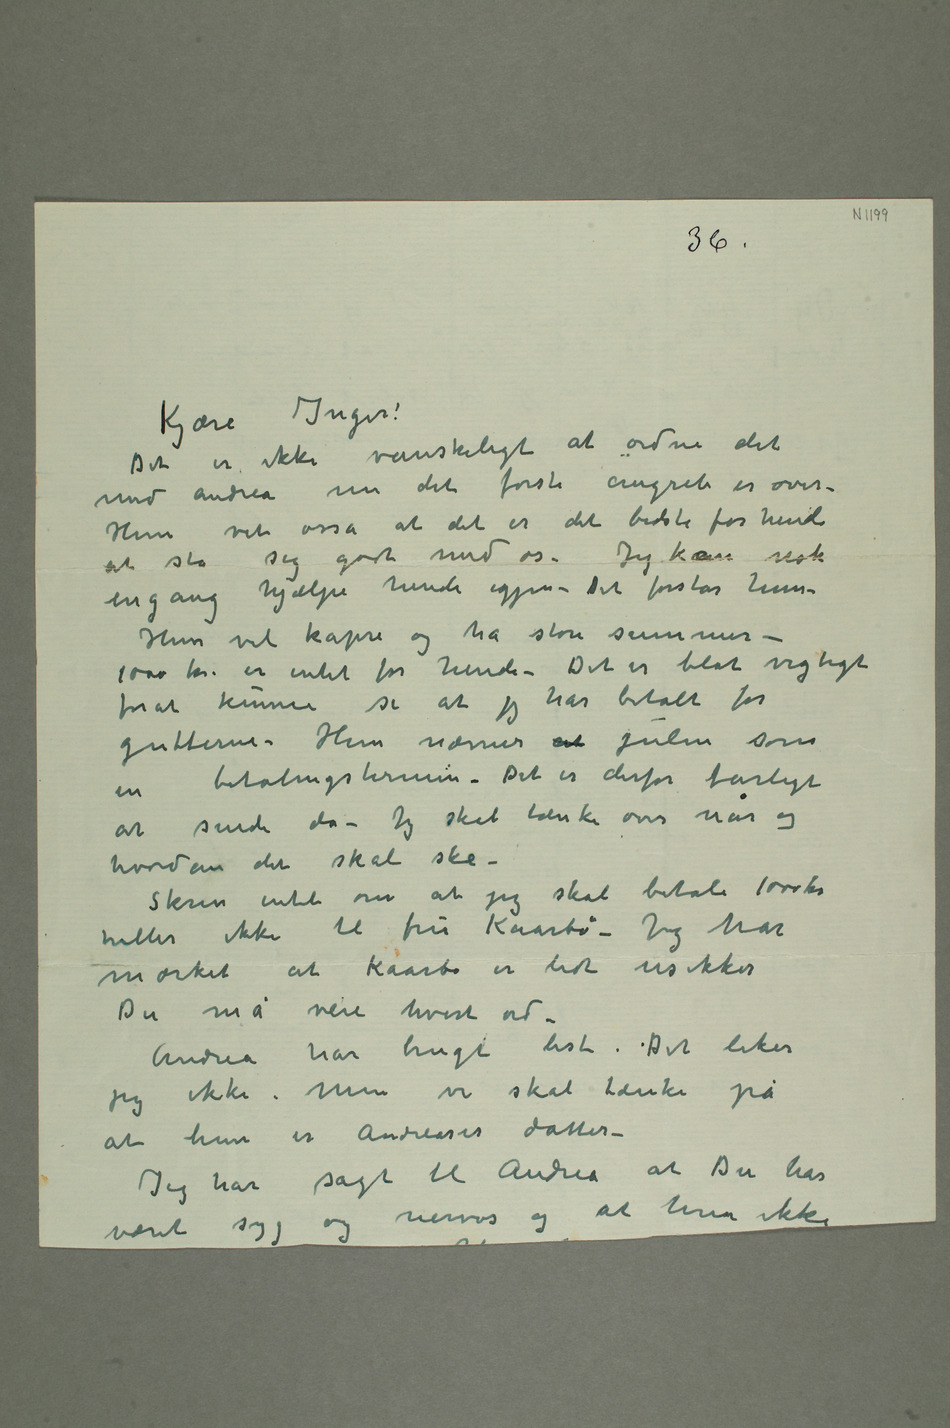 N1199
36.
Kjære Inger!
Det er ikke vanskeligt at ordne det
med Andrea nu det første angreb er over –
Hun vet også at det er det bedste for hende
at stå sig godt med os – Jeg kan nok
engang hjælpe hende igjen – Det forstår hun –
Hun vil kapre og ha store summer –
1000 kr. er intet for hende – Det er blot vigtigt
forat kunne se at jeg har betalt for
gutterne – Hun nævner at julen som
en betalingstermin – Det er derfor farligt
at sende da – Jeg skal tænke over når og
hvordan det skal ske –
Skriv intet om at jeg skal betale 1000 kr
heller ikke til fru Kaarbø – Jeg har
mærket at Kaarbø er lidt usikker
Du må veie hvert ord –
Andrea har brugt list . Det liker
jeg ikke . Men vi skal tænke på
at hun er Andreases datter –
Jeg har sagt til Andrea at Du har
været syg og nervøs og at hun ikke